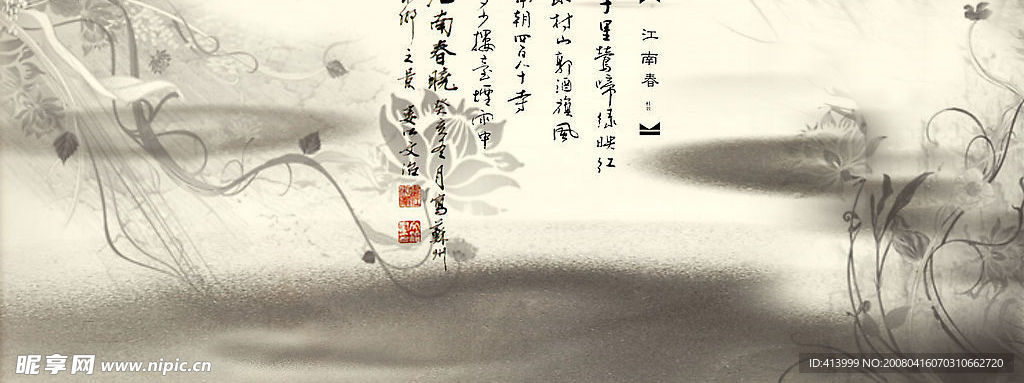 江南春
千里莺啼绿映红
村山郭酒旗风
朝四百八十寺
多少楼臺煙雨中
江南春曉 癸亥冬月寫蘇州
鄉之景 婁江文治
昵享网 www.nipic.cn
ID:413999 NO:20080416070310662720